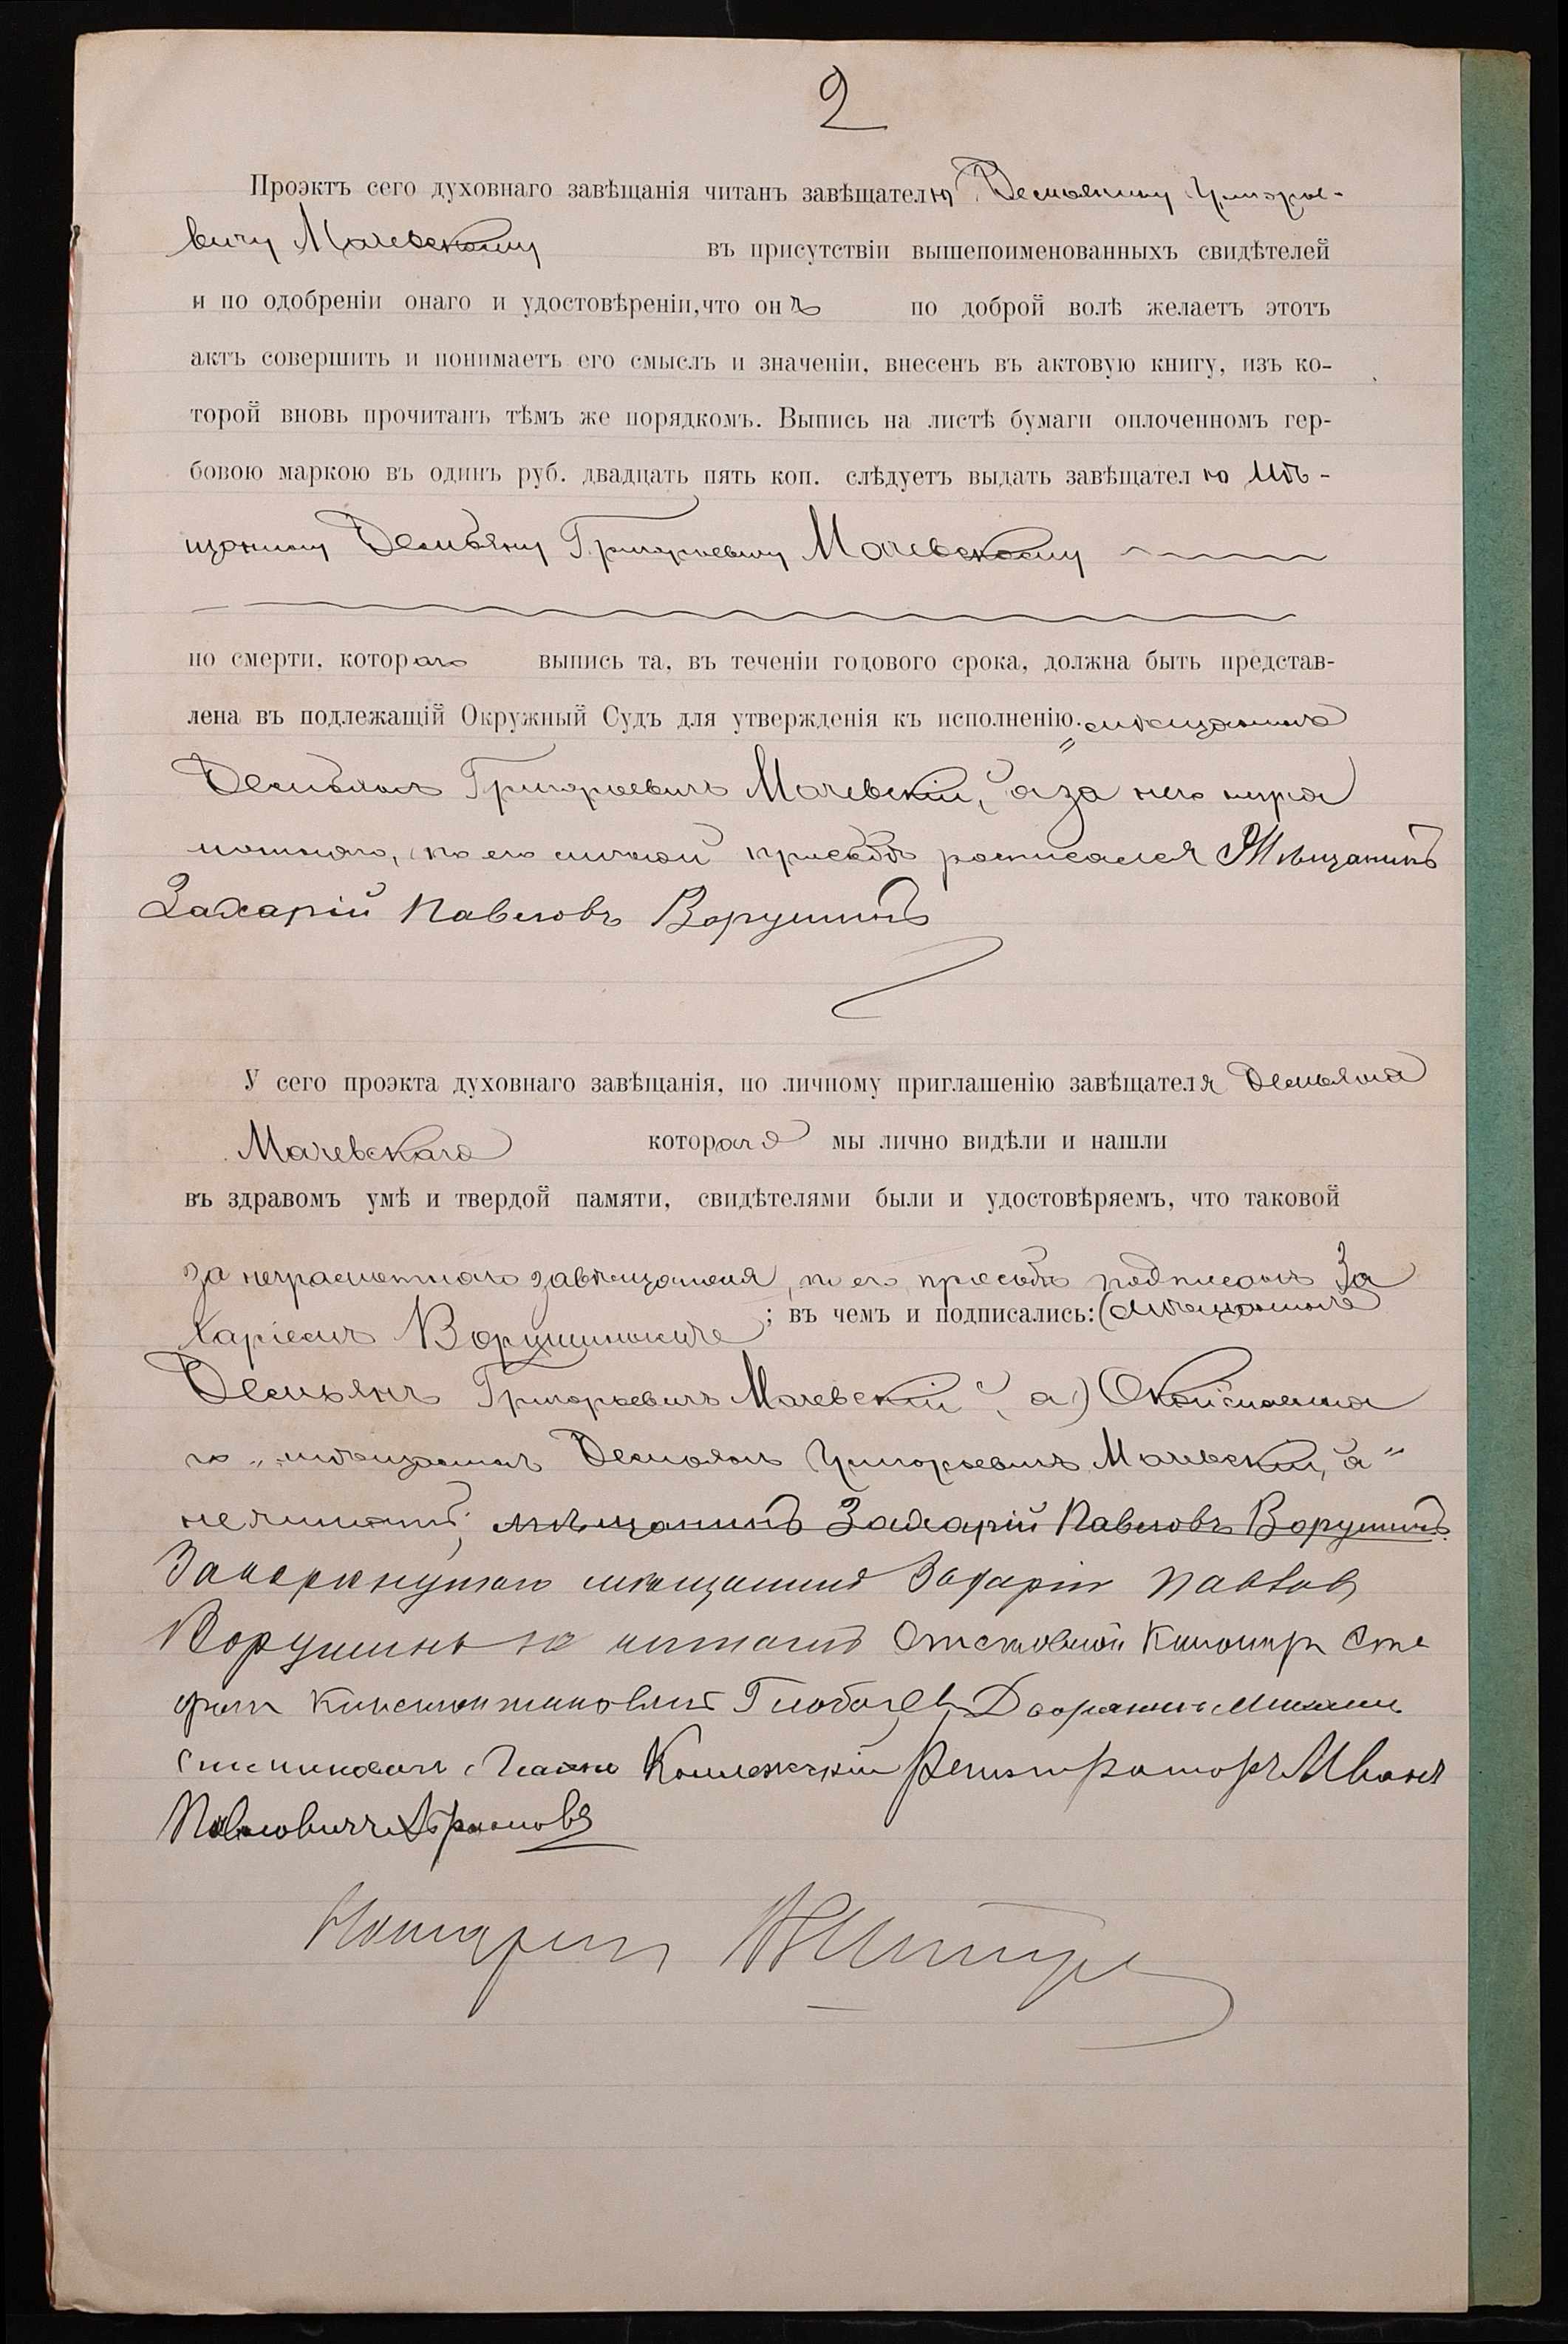 2
Проэктъ сего духовнаго завѣщанія читанъ завѣщателю Демьяну Григорье-
вичу Мачевскому въ присутствіи вышепоименованныхъ свидѣтелей
и по одобреніи онаго и удостовѣреніи, что онъ по доброй волѣ желаетъ этотъ
актъ совершить и понимаетъ его смыслъ и значеніи, внесенъ въ актовую книгу, изъ ко-
торой вновь прочитанъ тѣмъ же порядкомъ. Выпись на листѣ бумаги оплоченномъ гер-
бовою маркою въ одинъ руб. двадцать пять коп. слѣдуетъ выдать завѣщателю Мѣ-
щанину Демьяну Григорьевичу Мачевскому
по смерти, котораго выпись та, въ теченіи годового срока, должна быть представ-
лена въ подлежащій Окружный Судъ для утвержденія къ исполненію. „мѣщанинъ
Демьянъ Григорьевичъ Мачевскій, а за него негра
мотнаго, по его личной просьбѣ росписался Мѣщанинъ
Захарій Павловъ Ворушинъ
У сего проэкта духовнаго завѣщанія, по личному приглашенію завѣщателя Демьяна
Мачевскаго котораго мы лично видѣли и нашли
въ здравомъ умѣ и твердой памяти, свидѣтелями были и удостовѣряемъ, что таковой
за неграмотнаго завѣщателя, по его просьбѣ подписанъ За
харіемъ Ворушинымъ; въ чемъ и подписались: (мѣщанинъ
Демьянъ Григорьевичъ Мачевскій, а)
го „мѣщанинъ Демьянъ Григорьевичъ Мачевскій, а"
не читать; мѣщанинъ Захарій Павловъ Ворушинъ
Зачеркнутаго мѣщанинъ Захарій Павловъ
Ворушинъ не читать Отставной Сте
фанъ Константиновичъ Дворянинъ
Коллежскій Регистраторъ Иванъ
Павловичъ
Нотаріусъ